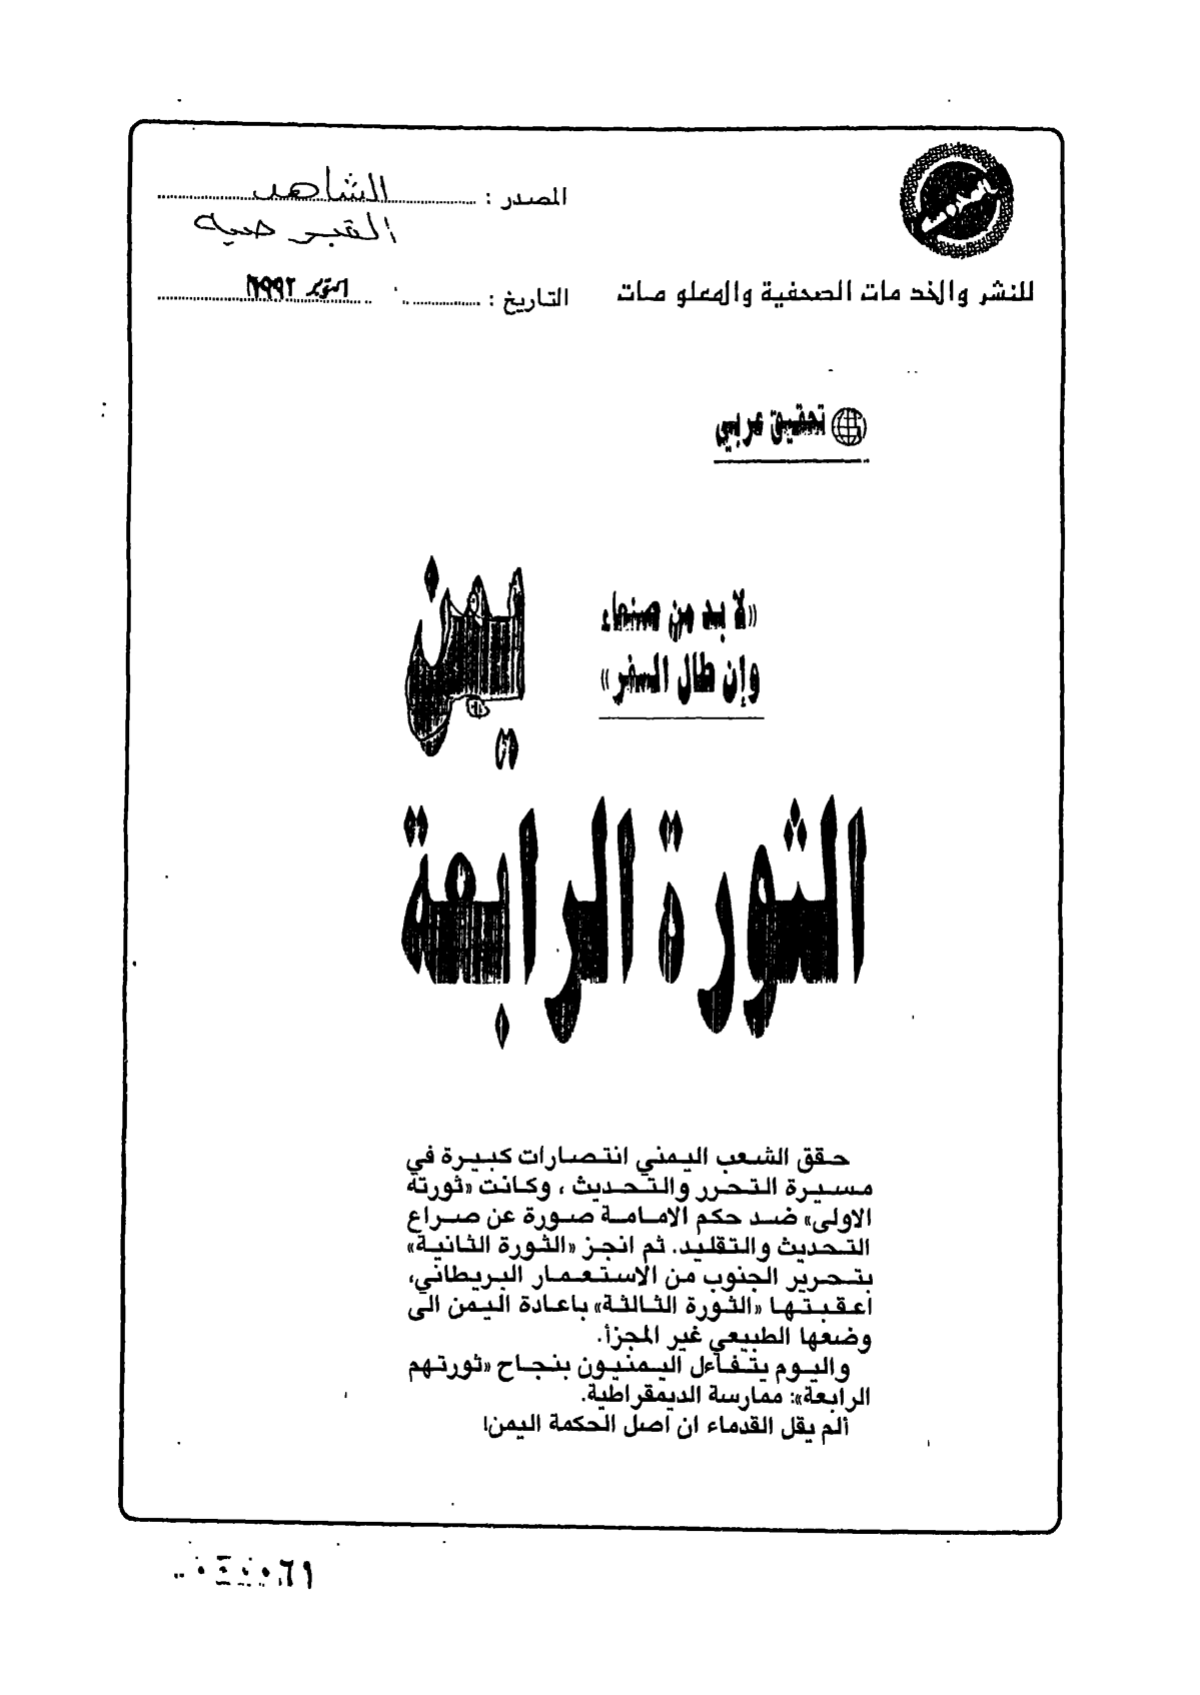 المصدر : الشاهد
القبرصية
للنشر والخدمات الصحفية والمعلومات
التاريخ : اكتوبر ١٩٩٢
تحقيق عربي
«لا بد من صنعاء
وإن طال السفر»
يمن
الثورة الرابعة
حقق الشعب اليمني انتصارات كبيرة في
مسيرة التحرر والتحديث ، وكانت «ثورته
الاولى» ضد حكم الامامة صورة عن صراع
التحديث والتقليد. ثم انجز «الثورة الثانية»
بتحرير الجنوب من الاستعمار البريطاني،
اعقبتها «الثورة الثالثة» باعادة اليمن الى
وضعها الطبيعي غير المجزأ.
واليوم يتفاءل اليمنيون بنجاح «ثورتهم
الرابعة»: ممارسة الديمقراطية.
ألم يقل القدماء ان اصل الحكمة اليمن!